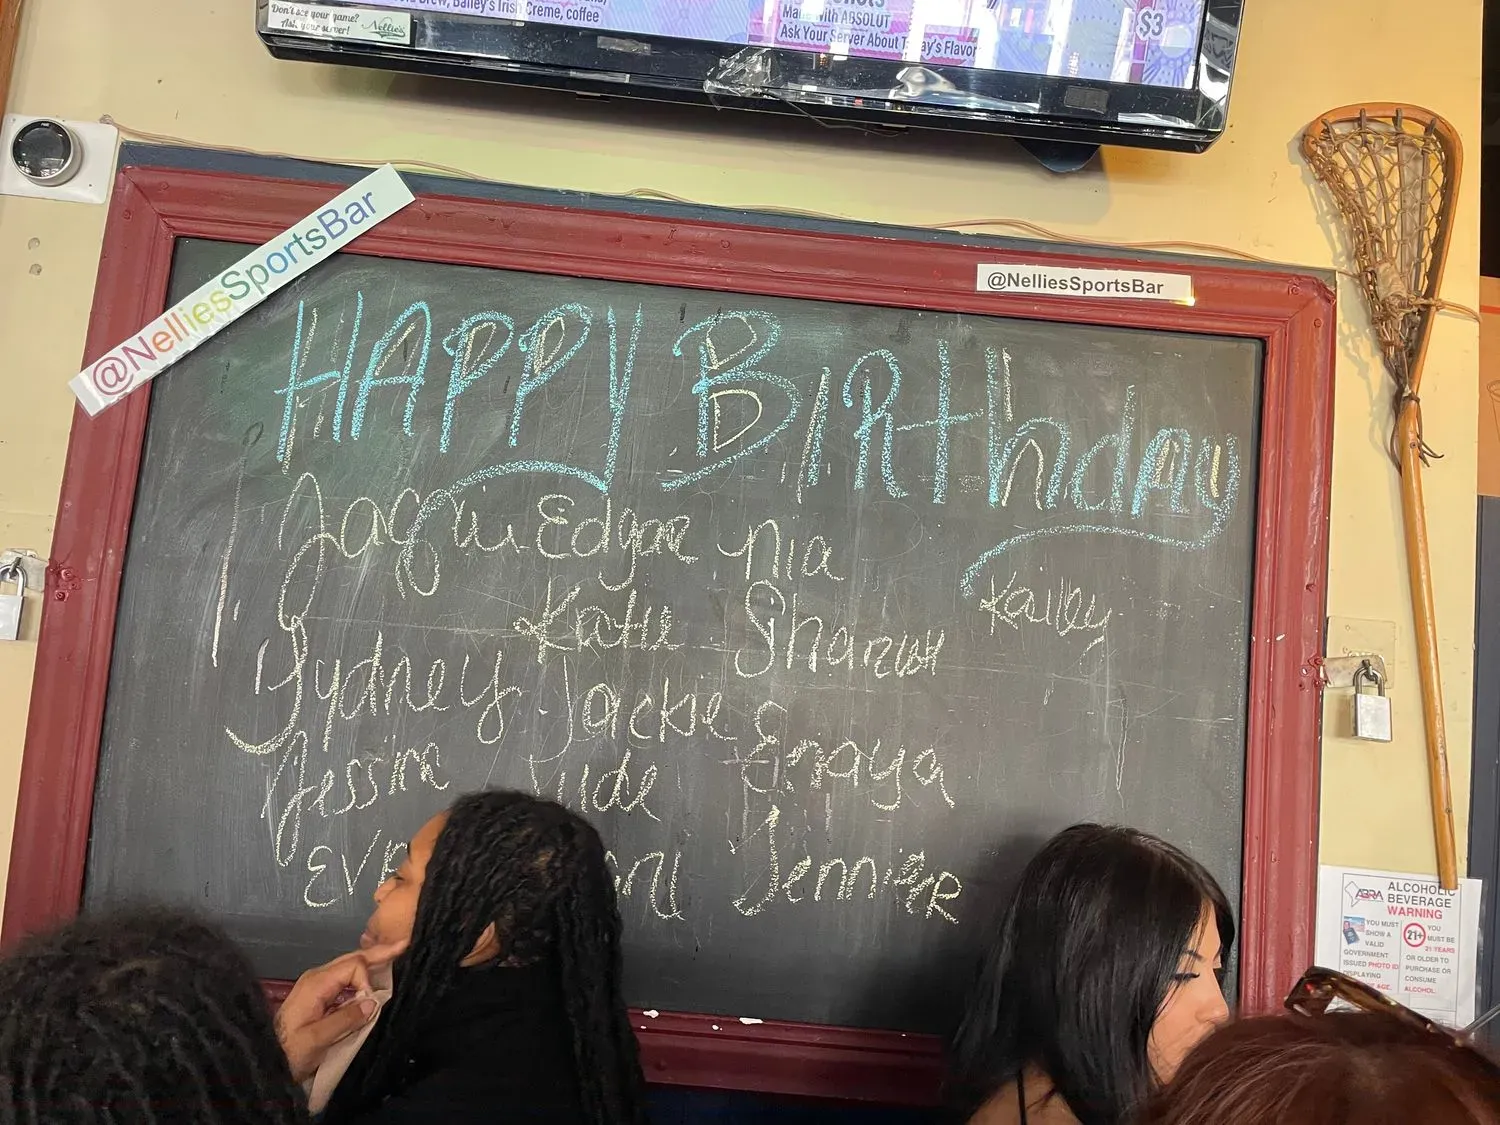 Brew, Bailey's Irish Creme, coffee
Don't see your name?
Ask your server!
Nellie's
Made with ABSOLUT
Ask Your Server About Today's Flavor
$3
@NelliesSportsBar
@NelliesSportsBar
HAPPY BIRthday
Jacqui Edgar Nia
Kailey
Katie
Sydney Jackie Enaya
Jessm
Jennifer
ABRA
ALCOHOLIC
BEVERAGE
WARNING
YOU MUST
SHOW A
VALID
GOVERNMENT
ISSUED PHOTO ID
DISPLAYING
AGE.
21+
YOU
MUST BE
21 YEARS
OR OLDER TO
PURCHASE OR
CONSUME
ALCOHOL.